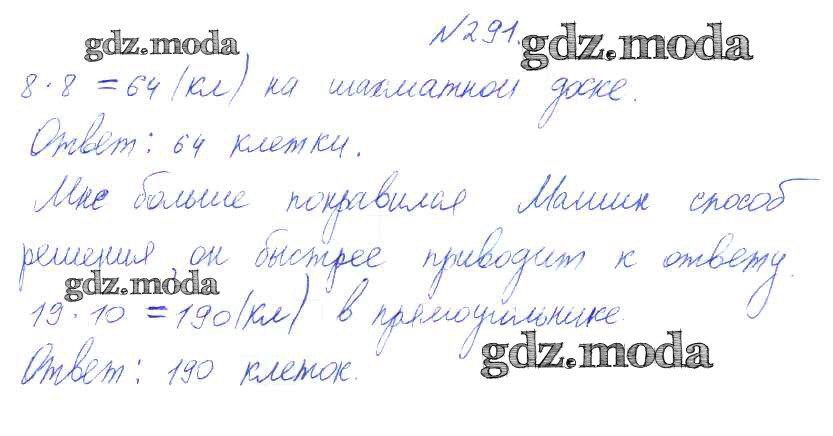 №291.
gdz.moda
gdz.moda
8·8=64(кл) на шахматной доске.
Ответ: 64 клетки.
Мне больше понравился Машин способ
решения, он быстрее приводит к ответу.
gdz.moda
19·10=190(кл) в прямоугольнике.
gdz.moda
Ответ: 190 клеток.